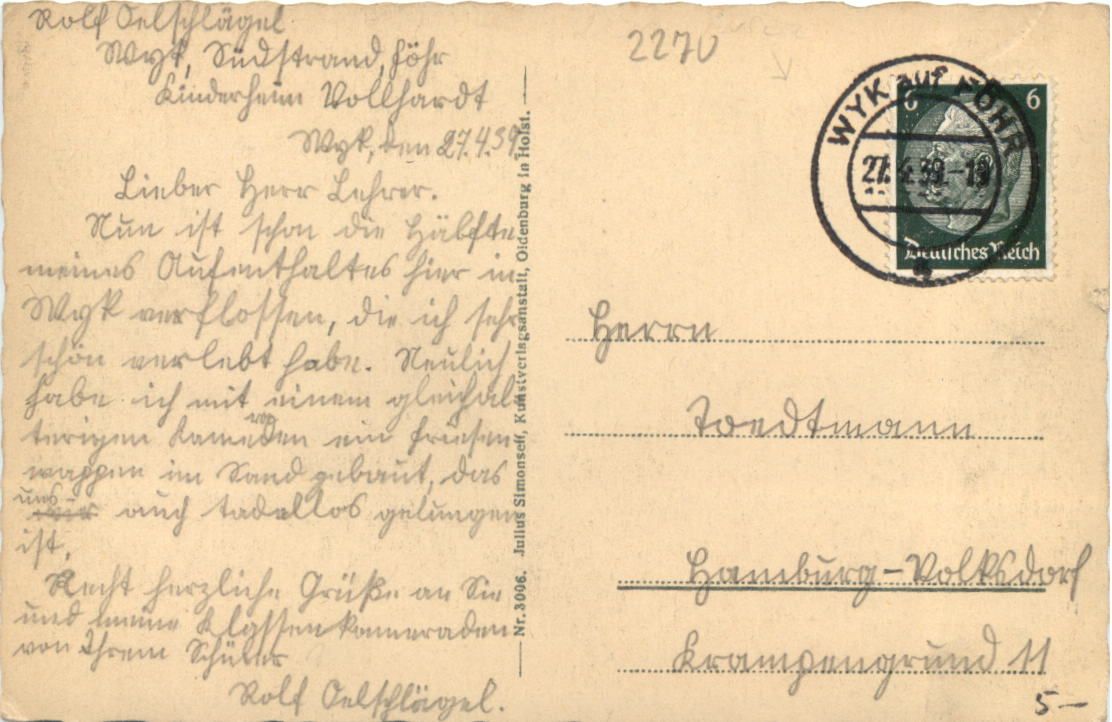 Rolf Oelschlägel
Wyk, Südstrand, Föhr
Kinderheim Vollhardt
Wyk, den 27.4.39.
Lieber Herr Lehrer.
Nun ist schon die Hälfte
meines Aufenthaltes hier in
Wyk verflossen, die ich sehr
schön verlebt habe. Neulich
habe ich mit einem gleichal
terigen Kameraden ein Friesen
wappen im Sand gebaut, das
uns
wir auch tadellos gelungen
ist.
Recht herzliche Grüße an Sie
und meine Klassenkameraden
von Ihrem Schüler
Rolf Oelschlägel.
Nr. 3006. Julius Simonsen, Kunstverlagsanstalt, Oldenburg in Holst.
2270
WYK auf FÖHR
27.4.39.-19
6 6
Deutsches Reich
Herrn
Toedtmann
Hamburg-Volksdorf
Krampengrund 11
5-